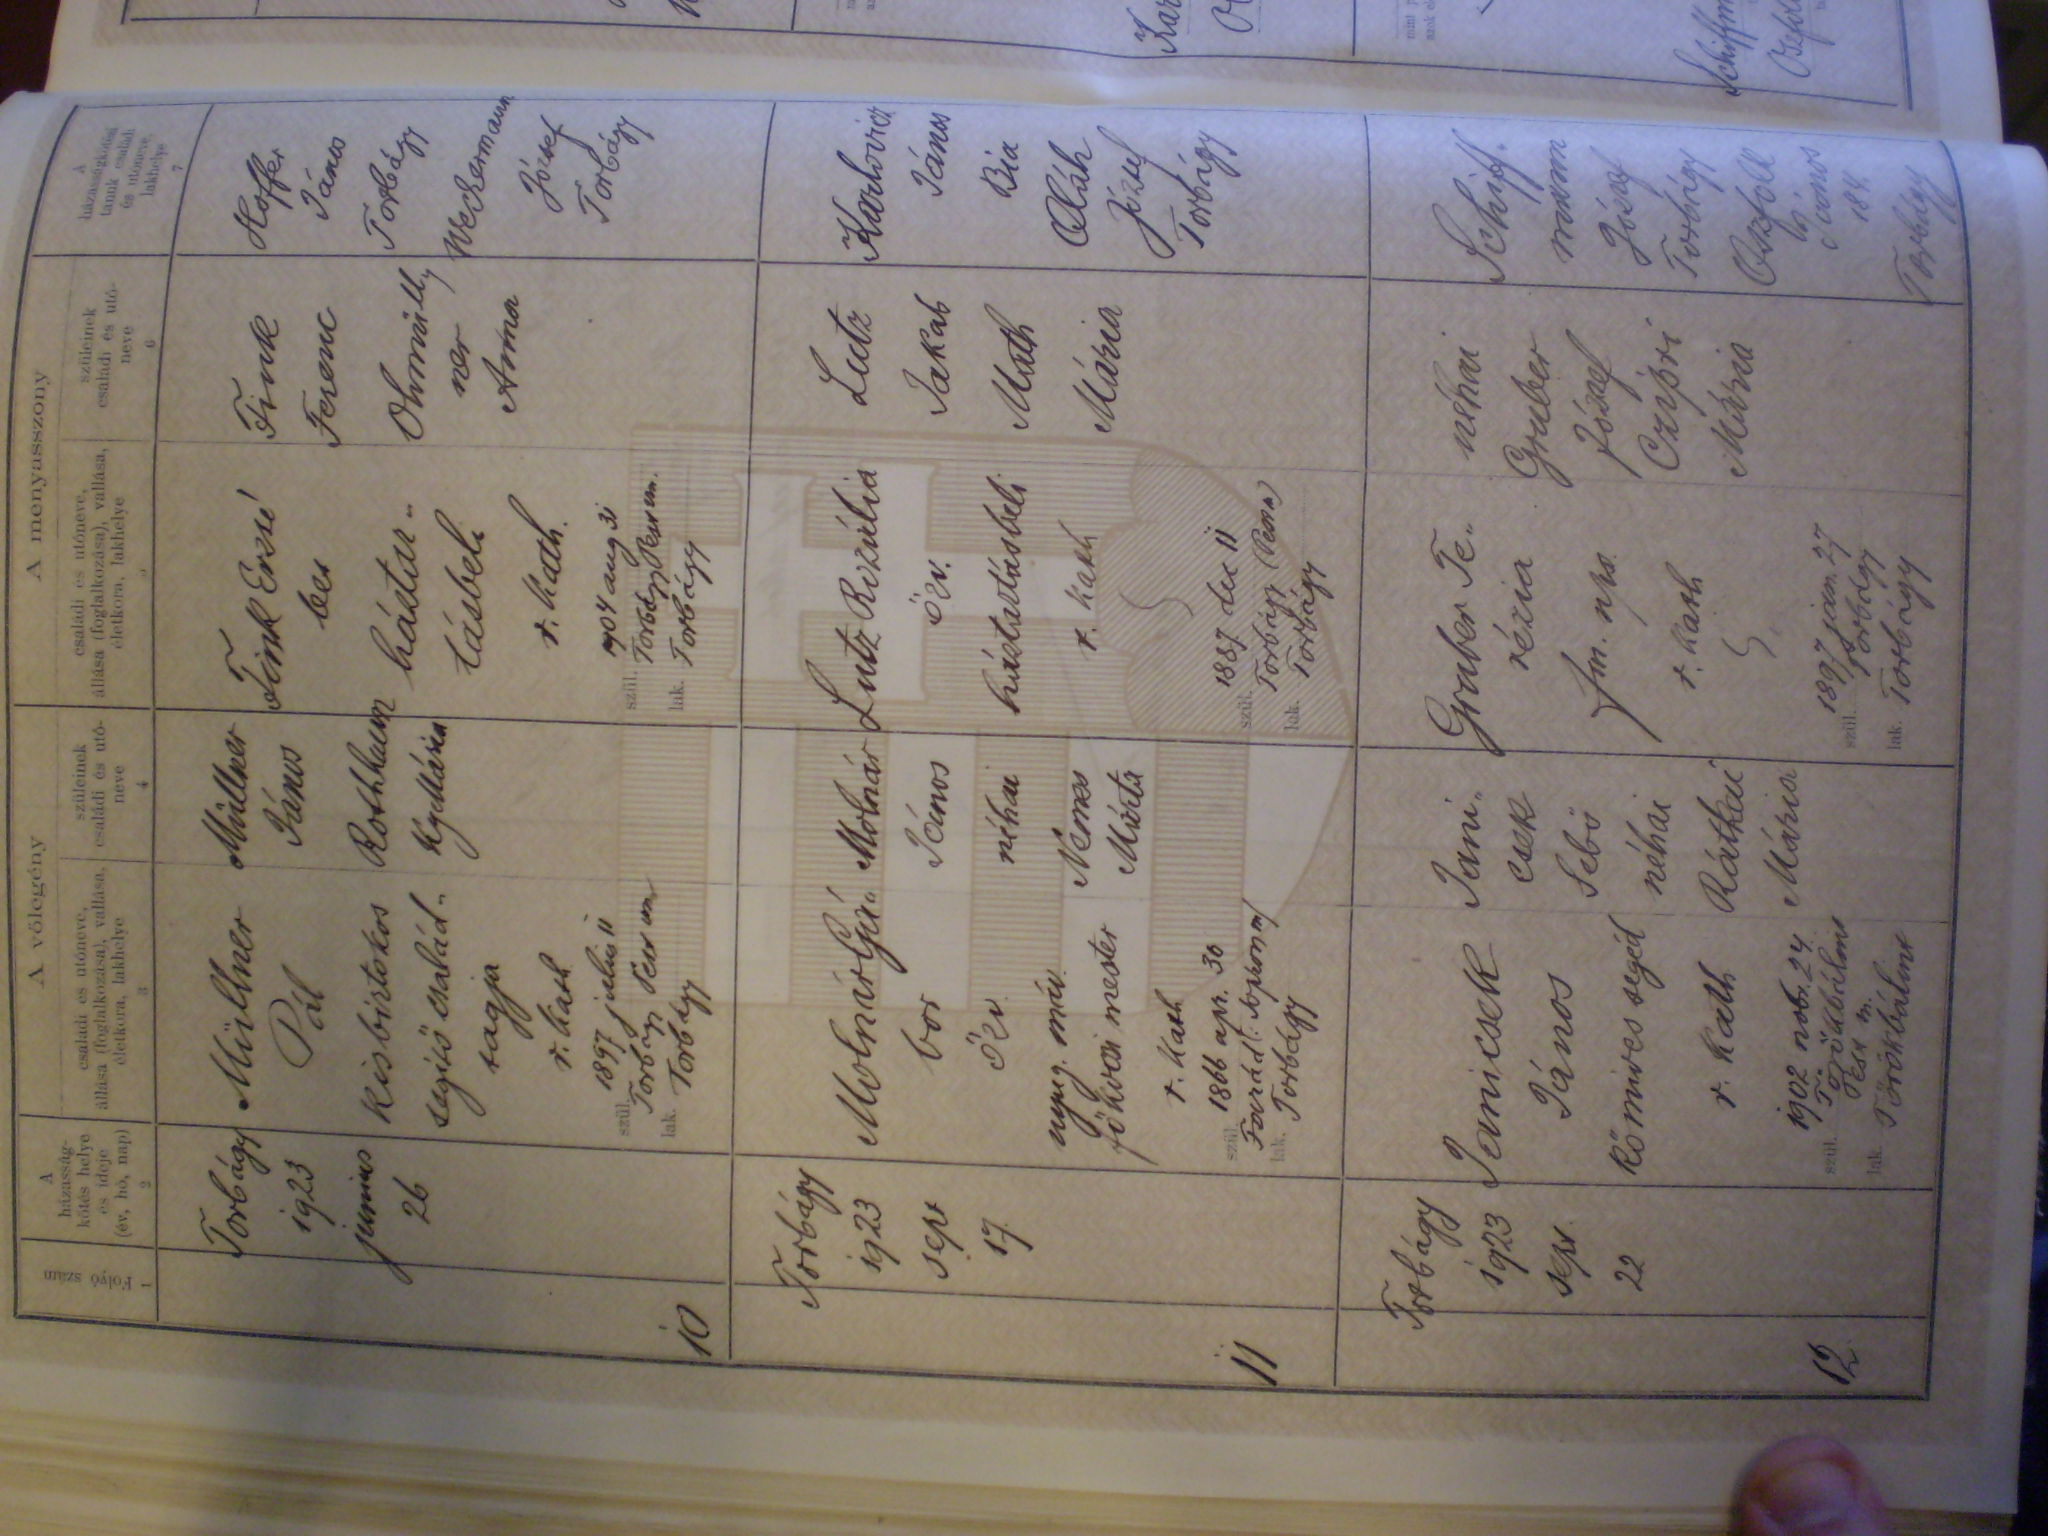 A vőlegény
A menyasszony
Folyó szám
A házasság-
kötés helye
és ideje
(év, hó, nap)
családi és utóneve,
állása (foglalkozása), vallása,
életkora, lakhelye
szüleinek
családi és utó-
neve
családi és utóneve,
állása (foglalkozása), vallása,
életkora, lakhelye
szüleinek
családi és utó-
neve
A
házasságkötési
tanuk családi
és utóneve,
lakhelye
1
2
3
4
5
6
7
10
Torbágy
1923
junius
26
Müllner
Pál
kisbirtokos
segitő család-
tagja
r. kath.
szül. 1897 julius 11
Torbágy Pest vm
lak. Torbágy
Müllner
János
Rothhaun
Mária
Fink Erzsé
bet
háztar-
tásbeli
r. kath.
szül. 1904 aug 31
Torbágy Pest vm.
lak. Torbágy
Fink
Ferenc
Ohmüll
ner
Anna
Hoffer
János
Torbágy
Weckermann
József
Torbágy
11
Torbágy
1923
sept
17.
Molnár Gá-
bor
özv.
nyug. máv.
mester
r. kath.
szül. 1866 apr. 30
Farád (Sopron m)
lak. Torbágy
Molnár
János
néhai
Nemes
Márta
Lutz Rozália
özv.
háztartásbeli
r. kath
szül. 1887 dec 11
Torbágy (Pest m)
lak. Torbágy
Lutz
Jakab
Muth
Mária
Karlovicz
János
Bia
Oláh
József
Torbágy
12
Torbágy
1923
sept.
22
Janicsek
János
kőmives segéd
r. kath
szül. 1902 nov. 24
Törökbálint
Pest m.
lak. Törökbálint
Jani-
csek
Sebő
néhai
Rátkai
Mária
Gruber Te-
rézia
fm. nps.
r. kath
szül. 1897 jan. 27
Torbágy
lak. Torbágy
néhai
Gruber
József
Czipri
Mária
Schiff-
mann
József
Torbágy
János
184.
Torbágy